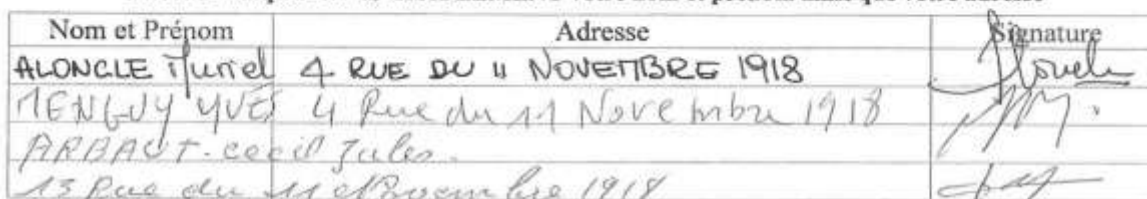 Nom et Prénom Adresse Signature
ALONCLE Muriel 4 RUE DU 11 NOVEMBRE 1918
MENGUY YVES 4 Rue du 11 Novembre 1918
ARBAUT-cecil Jules.
13 Rue du 11 Novembre 1918